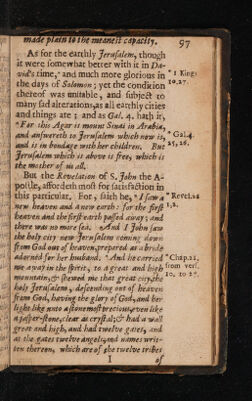 made plain to the meanest capacity. 97
As for the earthly Jerusalem, though
it were somewhat better with it in Da-
vid's time, * and much more glorious in
the days of Solomon; yet the condition
thereof was mutable, and subject to
many sad alterations, as all earthly cities
and things are; and as Gal. 4. hath it,
* For this Agar is mount Sinai in Arabia,
and answereth to Jerusalem which now is,
and is in bondage with her children. But
Jerusalem which is above is free, which is
the mother of us all.
But the Revelation of S. John the A-
postle, affordeth most for satisfaction in
this particular. For, saith he, * I saw a
new heaven and a new earth: for the first
heaven and the first earth passed away; and
there was no more sea. And I John saw
the holy city new Jerusalem coming down
from God out of heaven, prepared as a bride
adorned for her husband. * And he carried
me away in the spirit, to a great and high
mountain, & shewed me that great city, the
holy Jerusalem, descending out of heaven
from God, having the glory of God, and her
light like unto a stone most precious, even like
a jasper-stone, clear as crystal; & had a wall
great and high, and had twelve gates, and
at the gates twelve angels, and names writ-
ten thereon, which are of the twelve tribes
I of
* 1 King.
10.27.
* Gal.4.
25, 26.
* Revel.21
1,2.
* Chap.21.
from ver.
10, to 27.